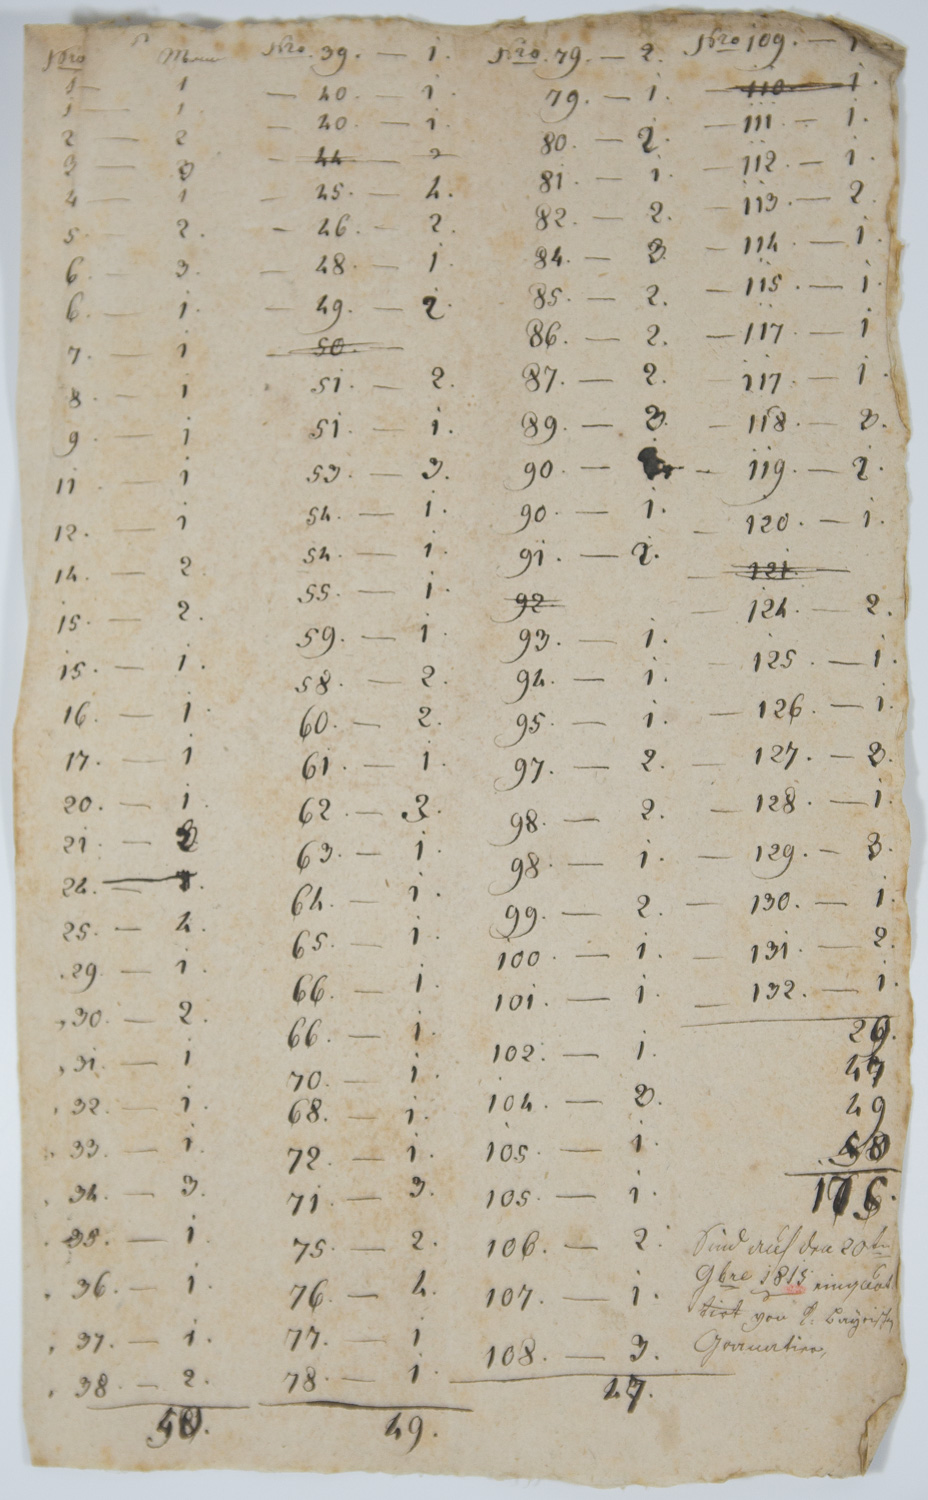 Nro Mann
1 1
1 1
2 — 2
3 — 3
4 — 1
5. — 2.
6. — 3.
6. — 1.
7. — 1
8. — 1
9. — 1
11 1
12. — 1
14. — 2
15. — 2.
15. — 1.
16. — 1.
17. — 1
20. — 1.
21. — 3
24. —
25. — 4.
29. — 1.
30. — 2.
31. — 1
32. — 1.
33. — 1.
34. — 3.
35. — 1.
36. — 1.
37. — 1.
38. — 2.
50.
Nro. 39. — 1.
— 40. — 1.
— 40. — 1.
44 — 2
— 45. — 4.
— 46. — 2.
— 48. — 1.
— 49. — 2.
50.
51. — 2.
51. — 1.
53. — 3.
54. — 1.
54. — 1.
55. — 1.
59. — 1.
58. — 2.
60. — 2.
61. — 1.
62. — 3.
63. — 1.
64. — 1.
65. — 1.
66. — 1
66. — 1.
70. — 1.
68. — 1.
72. — 1.
71. — 3.
75. — 2.
76. — 4.
77. — 1
78. — 1.
49.
Nro. 79. — 2.
79. — 1.
80. — 2.
81. — 1.
82. — 2.
84. — 3
85. — 2.
86. — 2.
87. — 2.
89. — 3.
90. —
90. — 1.
91. — 2.
92
93. — 1.
94. — 1.
95. — 1.
97. — 2.
98. — 2.
98. — 1.
99. — 2.
100. — 1.
101. — 1.
102. — 1.
104. — 3.
105. — 1.
105. — 1.
106. — 2.
107. — 1.
108. — 3.
47.
Nro 109. — 1
110. — 1.
— 111. — 1.
— 112. — 1.
— 113. — 2.
— 114 — 1.
— 115 — 1.
— 117 — 1
— 117. — 1.
— 118. — 3.
— 119. — 2.
— 120. — 1.
— 121.
— 124. — 2.
— 125. — 1.
— 126. — 1.
— 127. — 3.
— 128. — 1.
— 129. — 3.
— 130. — 1.
— 131 — 2.
— 132. — 1.
29.
47
49
50
175.
Sind auf den 20ten
9bre 1815 einquar
tirt von